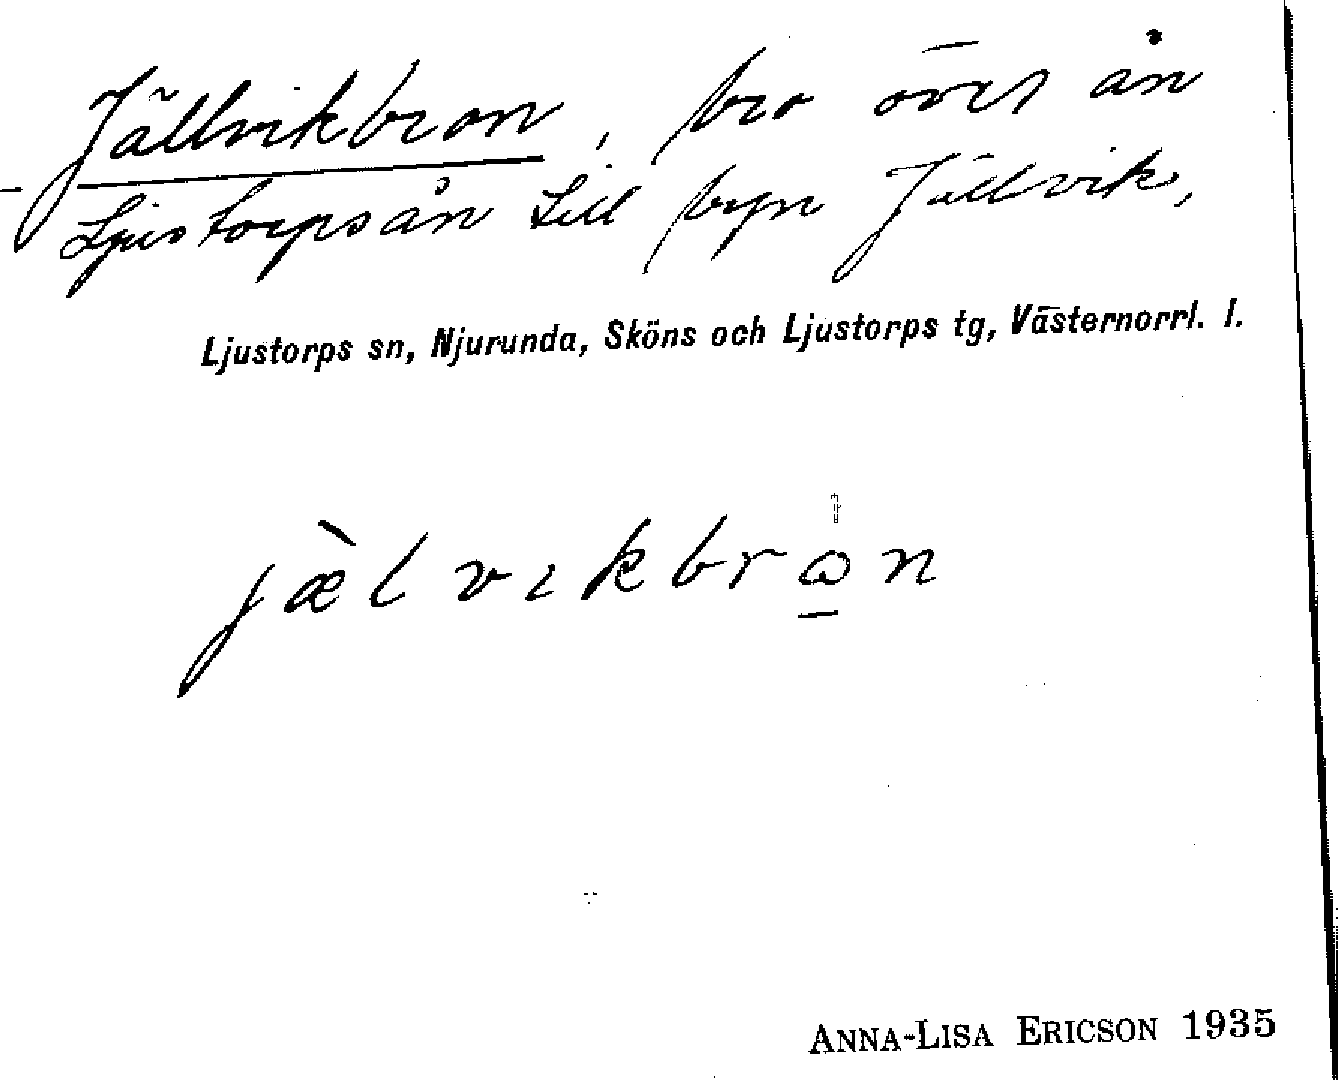 Jällvikbron, bro över ån
Ljustorpsån till byn Jällvik,
Ljustorps sn, Njurunda, Sköns och Ljustorps tg, Västernorrl. l.
jæ̀lvıkbrω̲n
ANNA-LISA ERICSON 1935